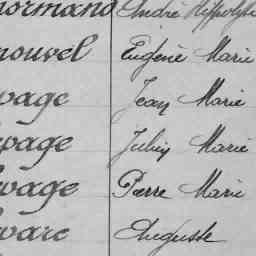 normand André Hippolyte
nouvel Eugène Marie
page Jean Marie
page Julien Marie
page Pierre Marie
Auguste